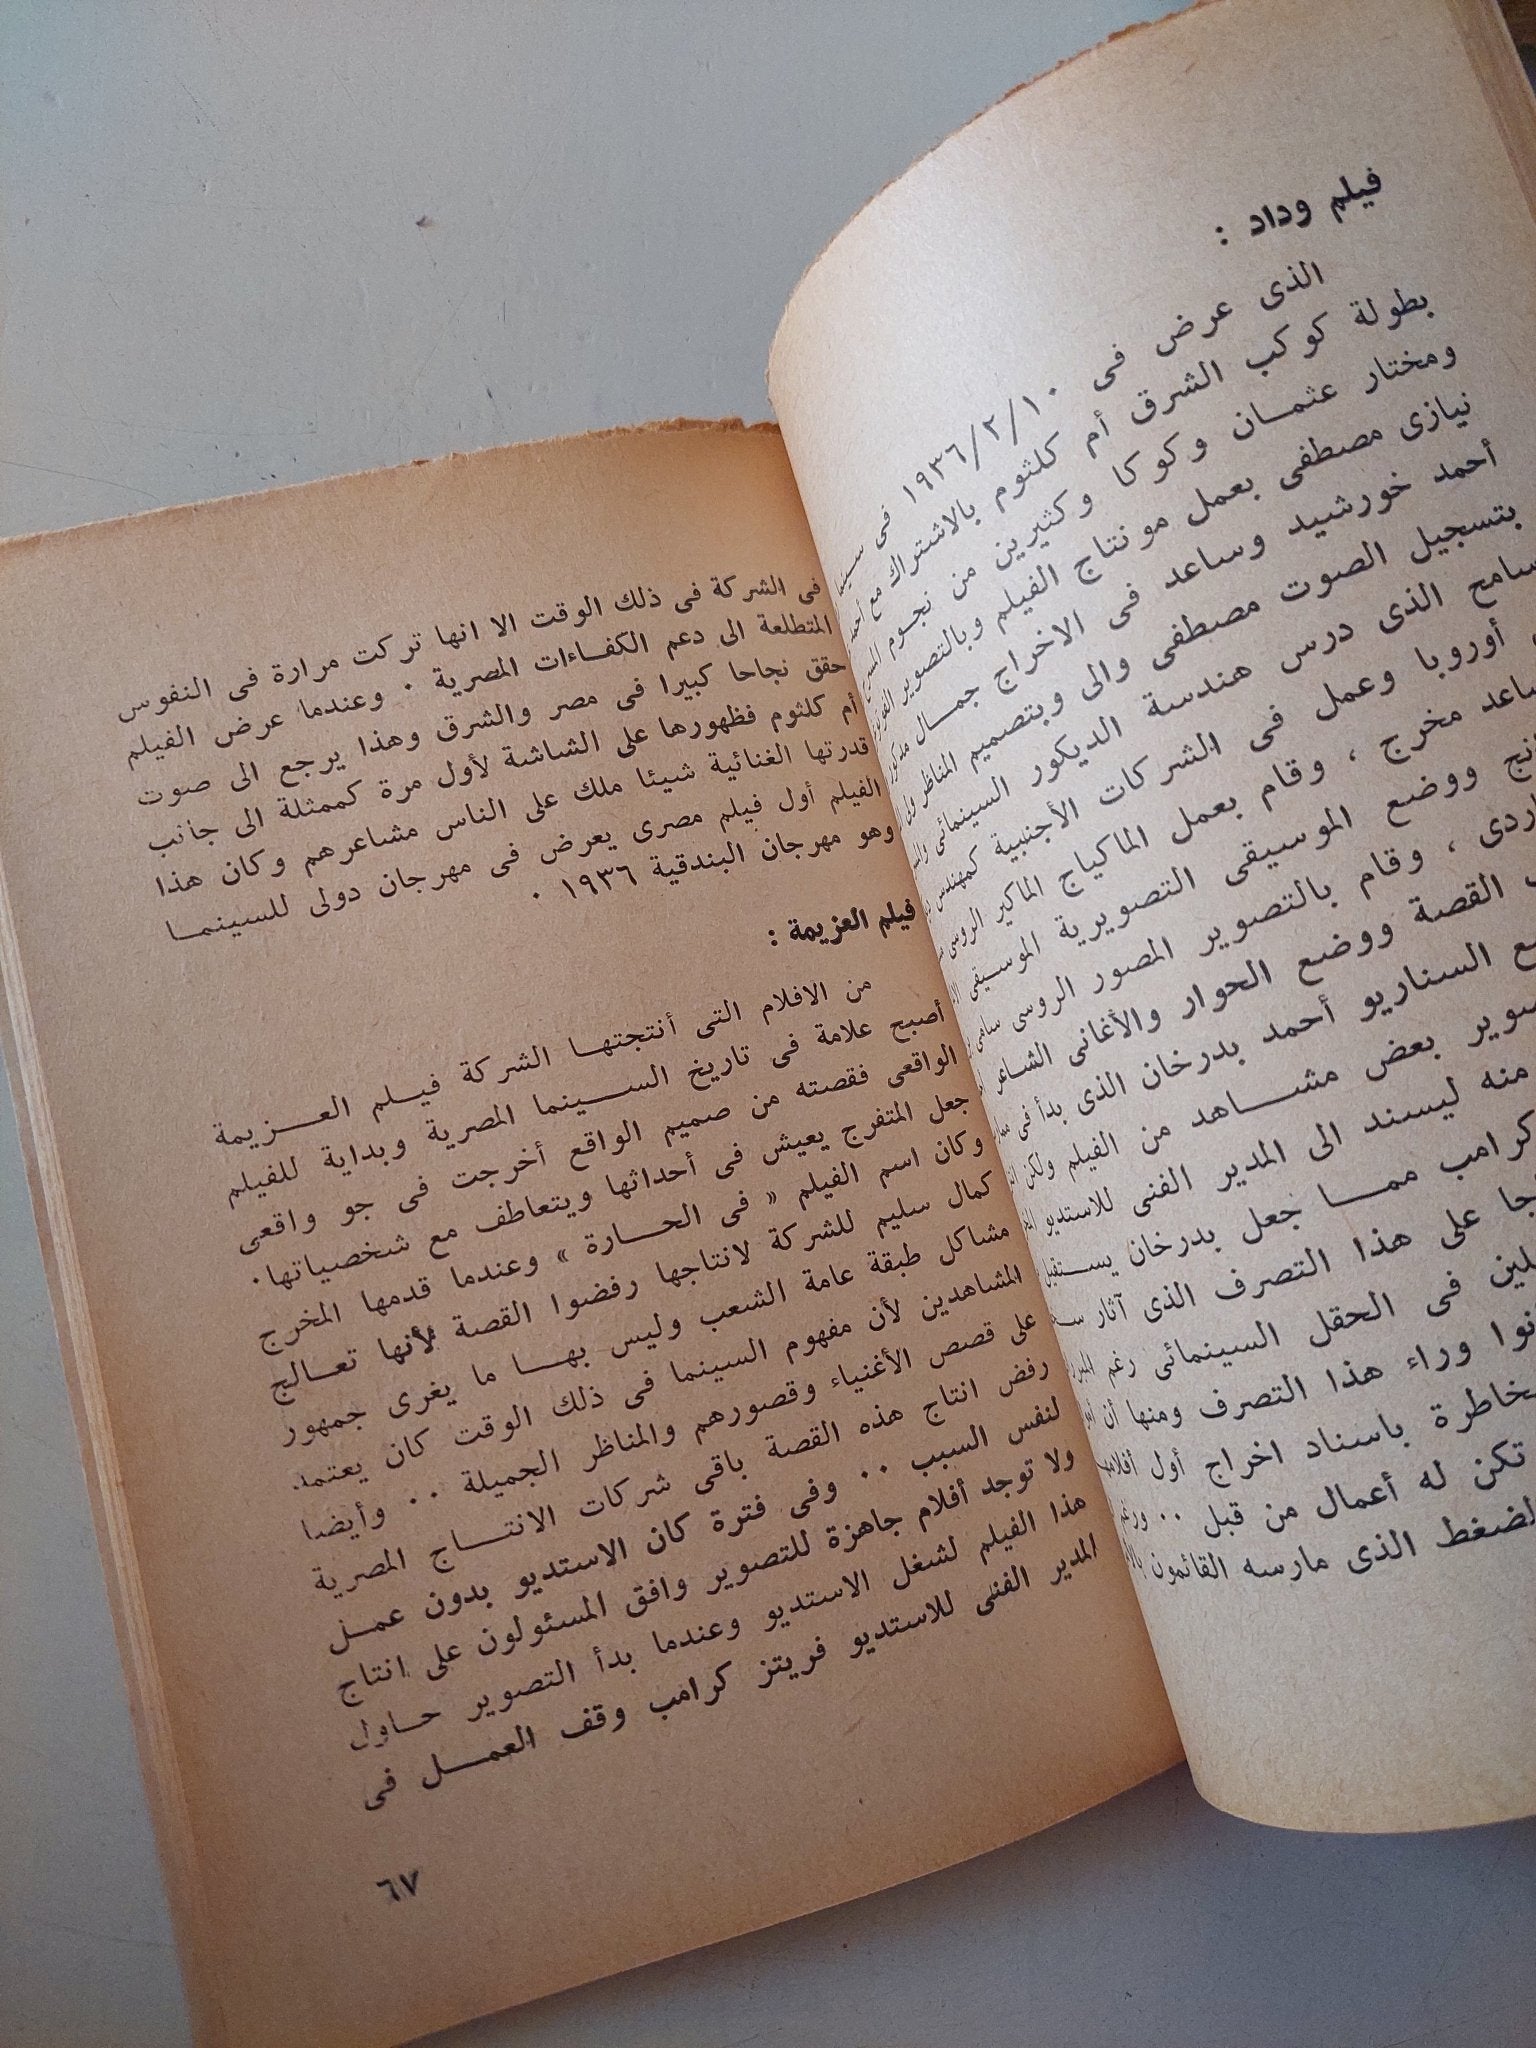 فيلم وداد :
الذى عرض فى ١٩٣٦/٢/١٠ فى سينما
بطولة كوكب الشرق أم كلثوم بالاشتراك مع أحمد
ومختار عثمـان وكوكا وكثيرين من نجوم المسرح
نيازى مصطفى بعمل مونتاج الفيلم وبالتصوير
أحمد خورشيد وساعد فى الاخراج جمـال مدكور
بتسجيل الصوت مصطفى والى وبتصميم المناظر ولى
سامح الذى درس هندسة الديكور السينمائى
أوروبا وعمل فى الشركات الأجنبية كمهندس
مخرج ، وقام بعمل الماكياج الماكير الروسى
ووضع الموسيقى التصويرية الموسيقى
، وقام بالتصوير المصور الروسى سامى
القصة ووضع الحوار والأغانى الشاعر
السناريو أحمد بدرخان الذى بدأ فى
بعض مشـاهد من الفيلم ولكن
منه ليسند الى المدير الفنى للاستديو
كرامب ممـا جعل بدرخان يستقيل
على هذا التصرف الذى آثار
فى الحقل السينمائى رغم
وراء هذا التصرف ومنها أن
باسناد اخراج أول أفلامها
تكن له أعمال من قبل ٠٠ ورغم
الضغط الذى مارسه القائمون
فى الشركة فى ذلك الوقت الا انها تركت مرارة فى النفوس
المتطلعة الى دعم الكفـاءات المصرية ٠ وعندما عرض الفيلم
حقق نجاحا كبيرا فى مصر والشرق وهذا يرجع الى صوت
أم كلثوم فظهورها على الشاشة لأول مرة كممثلة الى جانب
قدرتها الغنائية شيئا ملك على الناس مشاعرهم وكان هذا
الفيلم أول فيلم مصرى يعرض فى مهرجان دولى للسينمـا
وهو مهرجان البندقية ١٩٣٦ ٠
فيلم العزيمة :
من الافلام التى أنتجتهـا الشركة فيـلم العـزيمة
أصبح علامة فى تاريخ السـينما المصرية وبداية للفيلم
الواقعى فقصته من صميم الواقع أخرجت فى جو واقعى
جعل المتفرج يعيش فى أحداثها ويتعاطف مع شخصياتها٠
وكان اسم الفيلم « فى الحـارة » وعندما قدمها المخرج
كمال سليم للشركة لانتاجها رفضوا القصة لأنها تعـالج
مشاكل طبقة عامة الشعب وليس بهـا ما يغرى جمهور
المشاهدين لأن مفهوم السينما فى ذلك الوقت كان يعتمد
على قصص الأغنياء وقصورهم والمناظر الجميلة ٠٠ وأيضا
رفض انتاج هذه القصة باقى شركات الانتـاج المصرية
لنفس السبب ٠٠ وفى فترة كان الاستديو بدون عمـل
ولا توجد أفلام جاهزة للتصوير وافق المسئولون على انتاج
هذا الفيلم لشغل الاستديو وعندما بدأ التصوير حـاول
المدير الفنى للاستديو فريتز كرامب وقف العمـل فى
٦٧